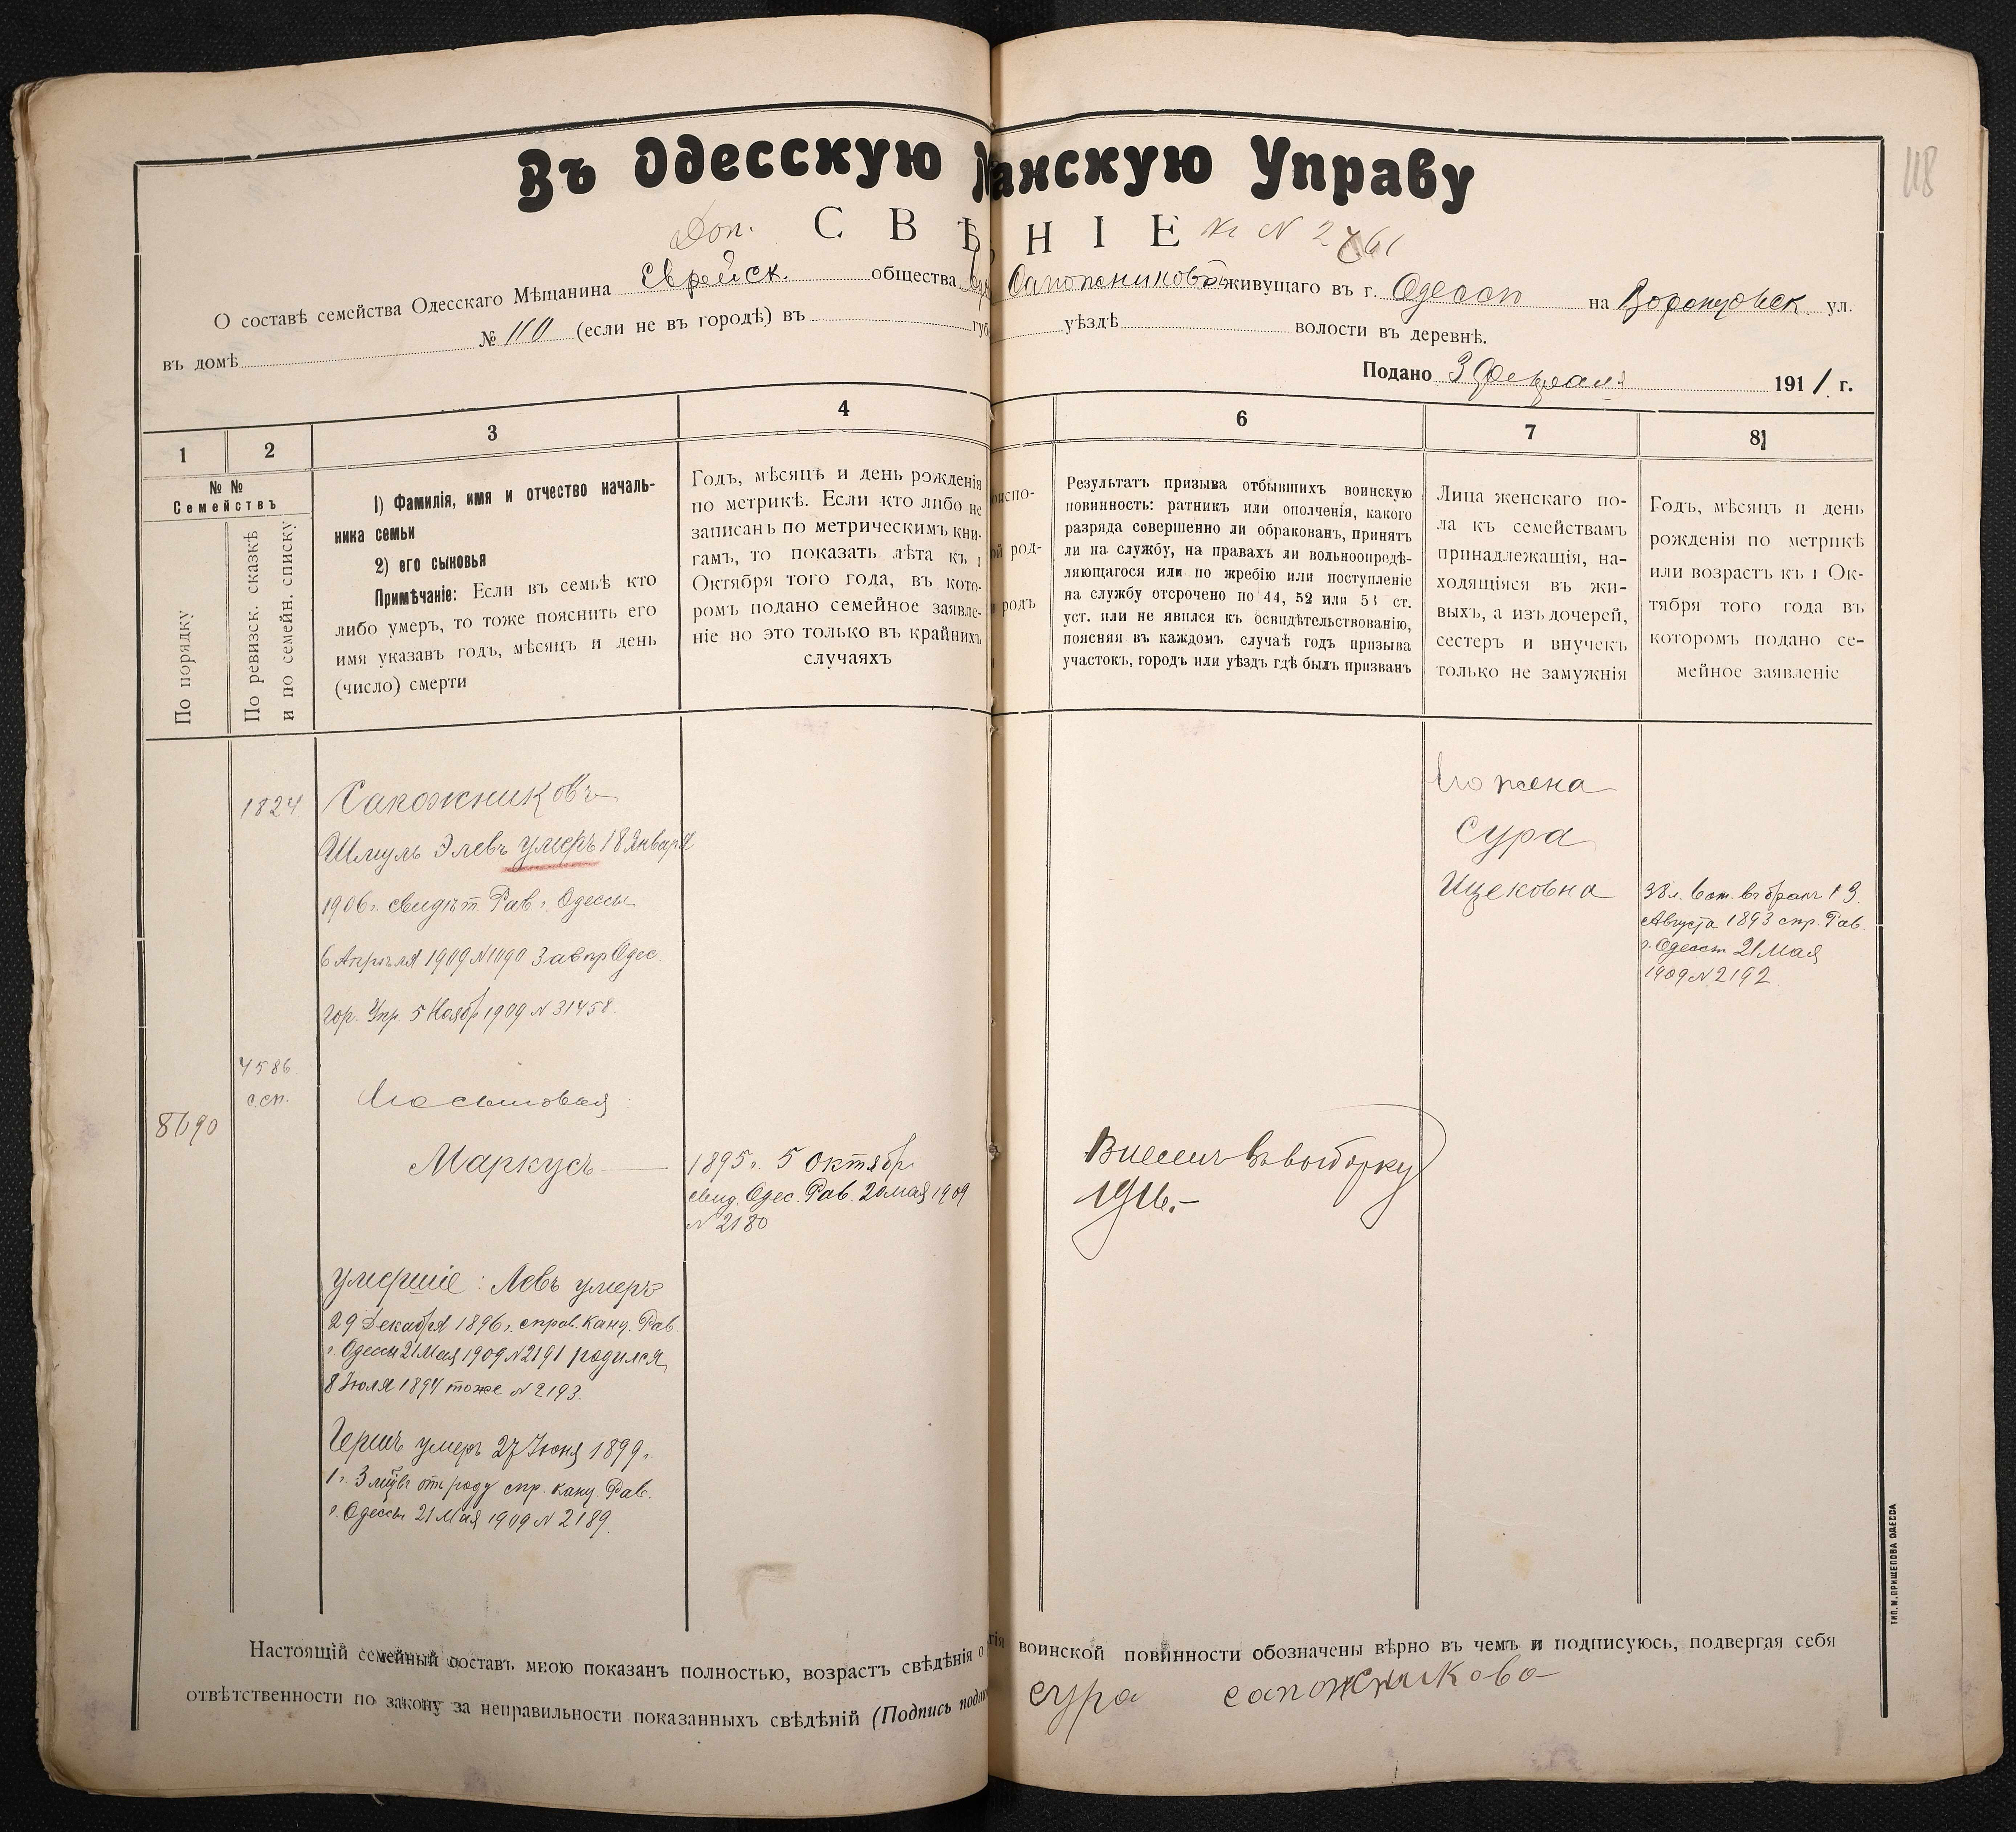 118
Въ Одесскую анскую Управу
Доп. СВѢ НІЕ к N 2761
О составѣ семейства Одесскаго Мѣщанина Еврейск. общества Сапожниковъ живущаго въ г. Одессѣ на Воронцовск. ул.
въ домѣ № 110 (если не въ городѣ) въ губ уѣздѣ волости въ деревнѣ.
Подано 3 Февраля 1911 г.
1 2 3 4 6 7 8
№ №
Семействъ
По порядку
По ревизск. сказкѣ
и по семейн. списку
1) Фамилія, имя и отчество началь-
ника семьи
2) его сыновья
Примѣчаніе: Если въ семьѣ кто
либо умеръ, то тоже пояснить его
имя указавъ годъ, мѣсяцъ и день
(число) смерти
Годъ, мѣсяцъ и день рожденія
по метрикѣ. Если кто либо не
записанъ по метрическимъ кни-
гамъ, то показать лѣта къ 1
Октября того года, въ кото-
ромъ подано семейное заявле-
ніе но это только въ крайнихъ
случаяхъ
испо-
ой род-
родъ
Результатъ призыва отбывшихъ воинскую
повинность: ратникъ или ополченія, какого
разряда совершенно ли обракованъ, принятъ
ли на службу, на правахъ ли вольноопредѣ-
ляющагося или по жребію или поступленіе
на службу отсрочено по 44, 52 или 53 ст.
уст. или не явился къ освидѣтельствованію,
поясняя въ каждомъ случаѣ годъ призыва
участокъ, городъ или уѣздъ гдѣ былъ призванъ
Лица женскаго по-
ла къ семействамъ
принадлежащія, на-
ходящіяся въ жи-
выхъ, а изъ дочерей,
сестеръ и внучекъ
только не замужнія
Годъ, мѣсяцъ и день
рожденія по метрикѣ
или возрастъ къ 1 Ок-
тября того года въ
которомъ подано се-
мейное заявленіе
1824
Сапожниковъ
Шмуль Элевъ умеръ 18 Января
1906 г. свидѣт. Рав. г. Одессы
6 Апрѣля 1909 N 1090 Завпр Одес.
гор. Упр. 5 Ноябр 1909 N 31458
7586
с.сп.
8690
Его сыновья
Маркусъ
1895 г. 5 Октябр
свид. Одес. Рав. 20 мая 1909
N 2180
умершіе: Левъ умеръ
29 Декабря 1896 г. справ. канц. Рав.
г. Одессы 21 Мая 1909 N 2191 родился
8 Іюля 1894 тоже N 2193.
Гершъ умеръ 27 Іюня 1899 г.
1 г. 3 мцвъ отъ роду спр. канц. Рав.
г. Одессы 21 Мая 1909 N 2189.
Внесенъ въ выборку
1916.-
Его жена
Сура
Ицековна
38 л. Вст. въ бракъ 13
Августа 1893 спр. Рав.
г. Одессы 21 Мая
1909 N 2192
Настоящій семейный составъ мною показанъ полностью, возрастъ свѣдѣнія о воинской повинности обозначены вѣрно въ чемъ и подписуюсь, подвергая себя
отвѣтственности по закону за неправильности показанныхъ свѣдѣній (Подпись пода сура сапожникова
ТИП. М. ПРИЩЕПОВА ОДЕССА